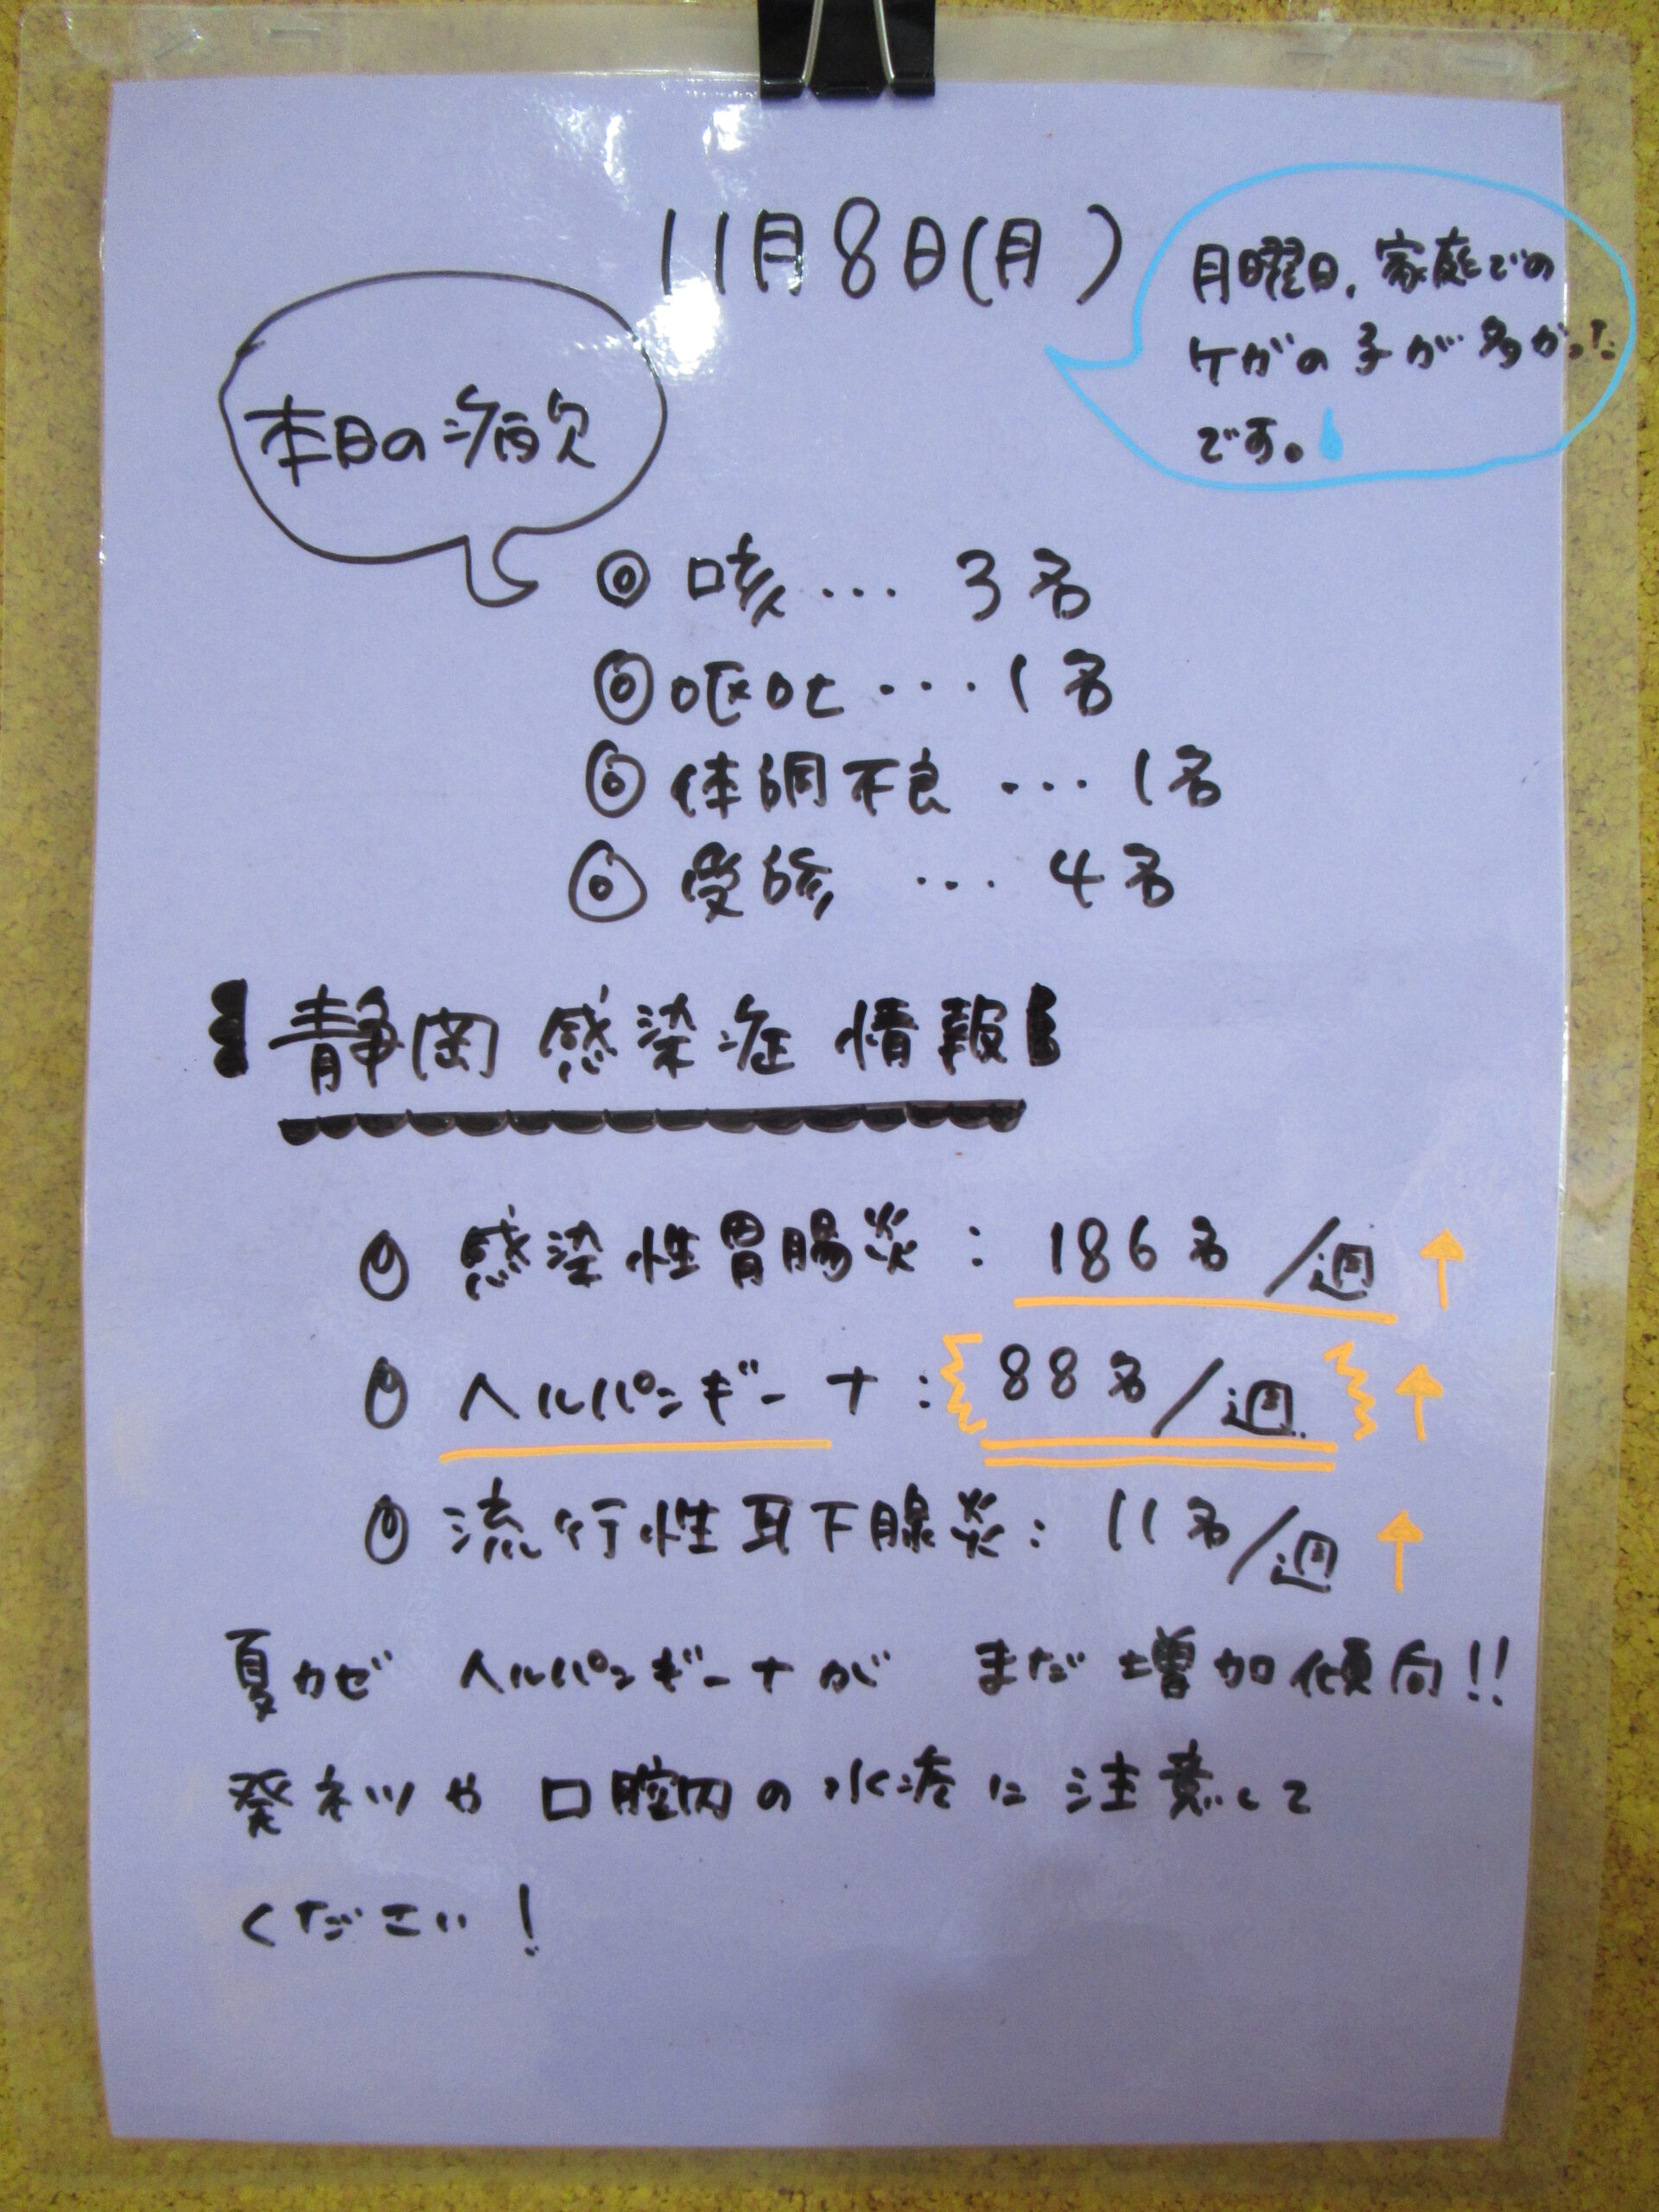 11月8日(月)
月曜日、家庭での
ケガの子が多かった
です。
本日の病欠
◎咳… 3名
◎嘔吐…1名
◎体調不良…1名
◎受診…4名
静岡 感染症 情報
感染性胃腸炎：186名/週↑
ヘルパンギーナ：88名/週↑
流行性耳下腺炎：11名/週↑
夏カゼ ヘルパンギーナが まだ増加傾向!!
発ネツや口腔内の水疱に注意して
ください！